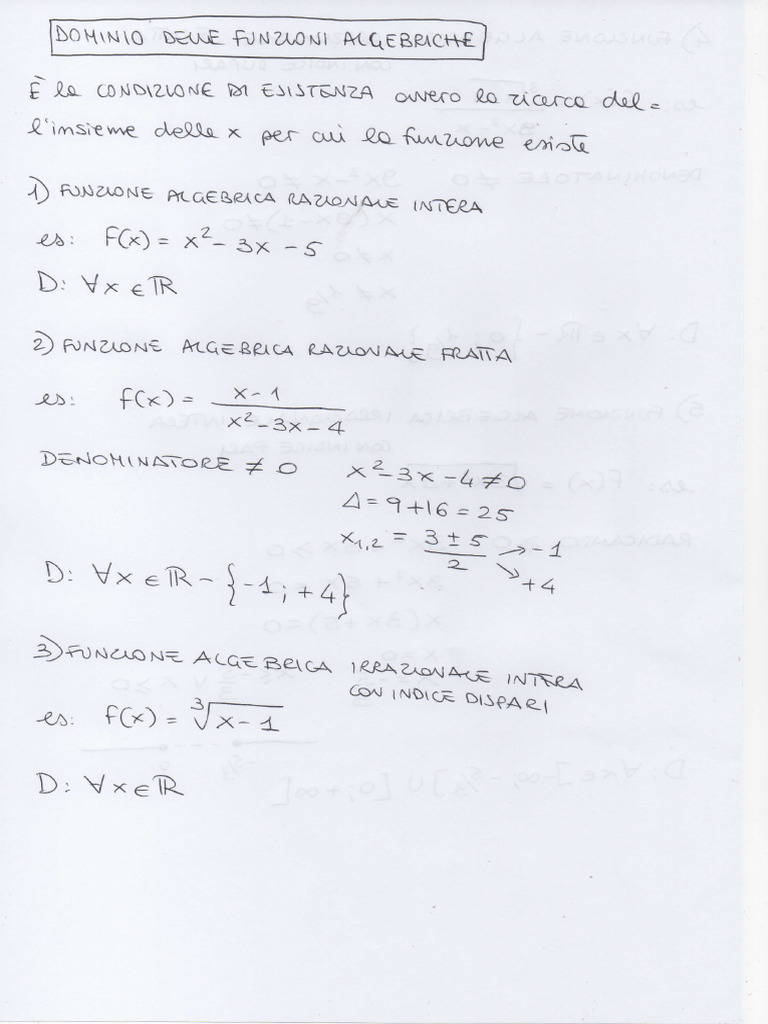 DOMINIO DELLE FUNZIONI ALGEBRICHE
È la CONDIZIONE DI ESISTENZA ovvero la ricerca del=
l'insieme delle x per cui la funzione esiste
1) FUNZIONE ALGEBRICA RAZIONALE INTERA
es: f(x) = x² - 3x - 5
D: ∀x ∈ ℝ
2) FUNZIONE ALGEBRICA RAZIONALE FRATTA
es: f(x) = (x-1)/(x²-3x-4)
DENOMINATORE ≠ 0 x²-3x-4≠0
Δ=9+16=25
x₁,₂ = (3±5)/2 → -1
↘ +4
D: ∀x ∈ ℝ - {-1; +4}
3) FUNZIONE ALGEBRICA IRRAZIONALE INTERA
CON INDICE DISPARI
es: f(x) = ∛(x-1)
D: ∀x ∈ ℝ